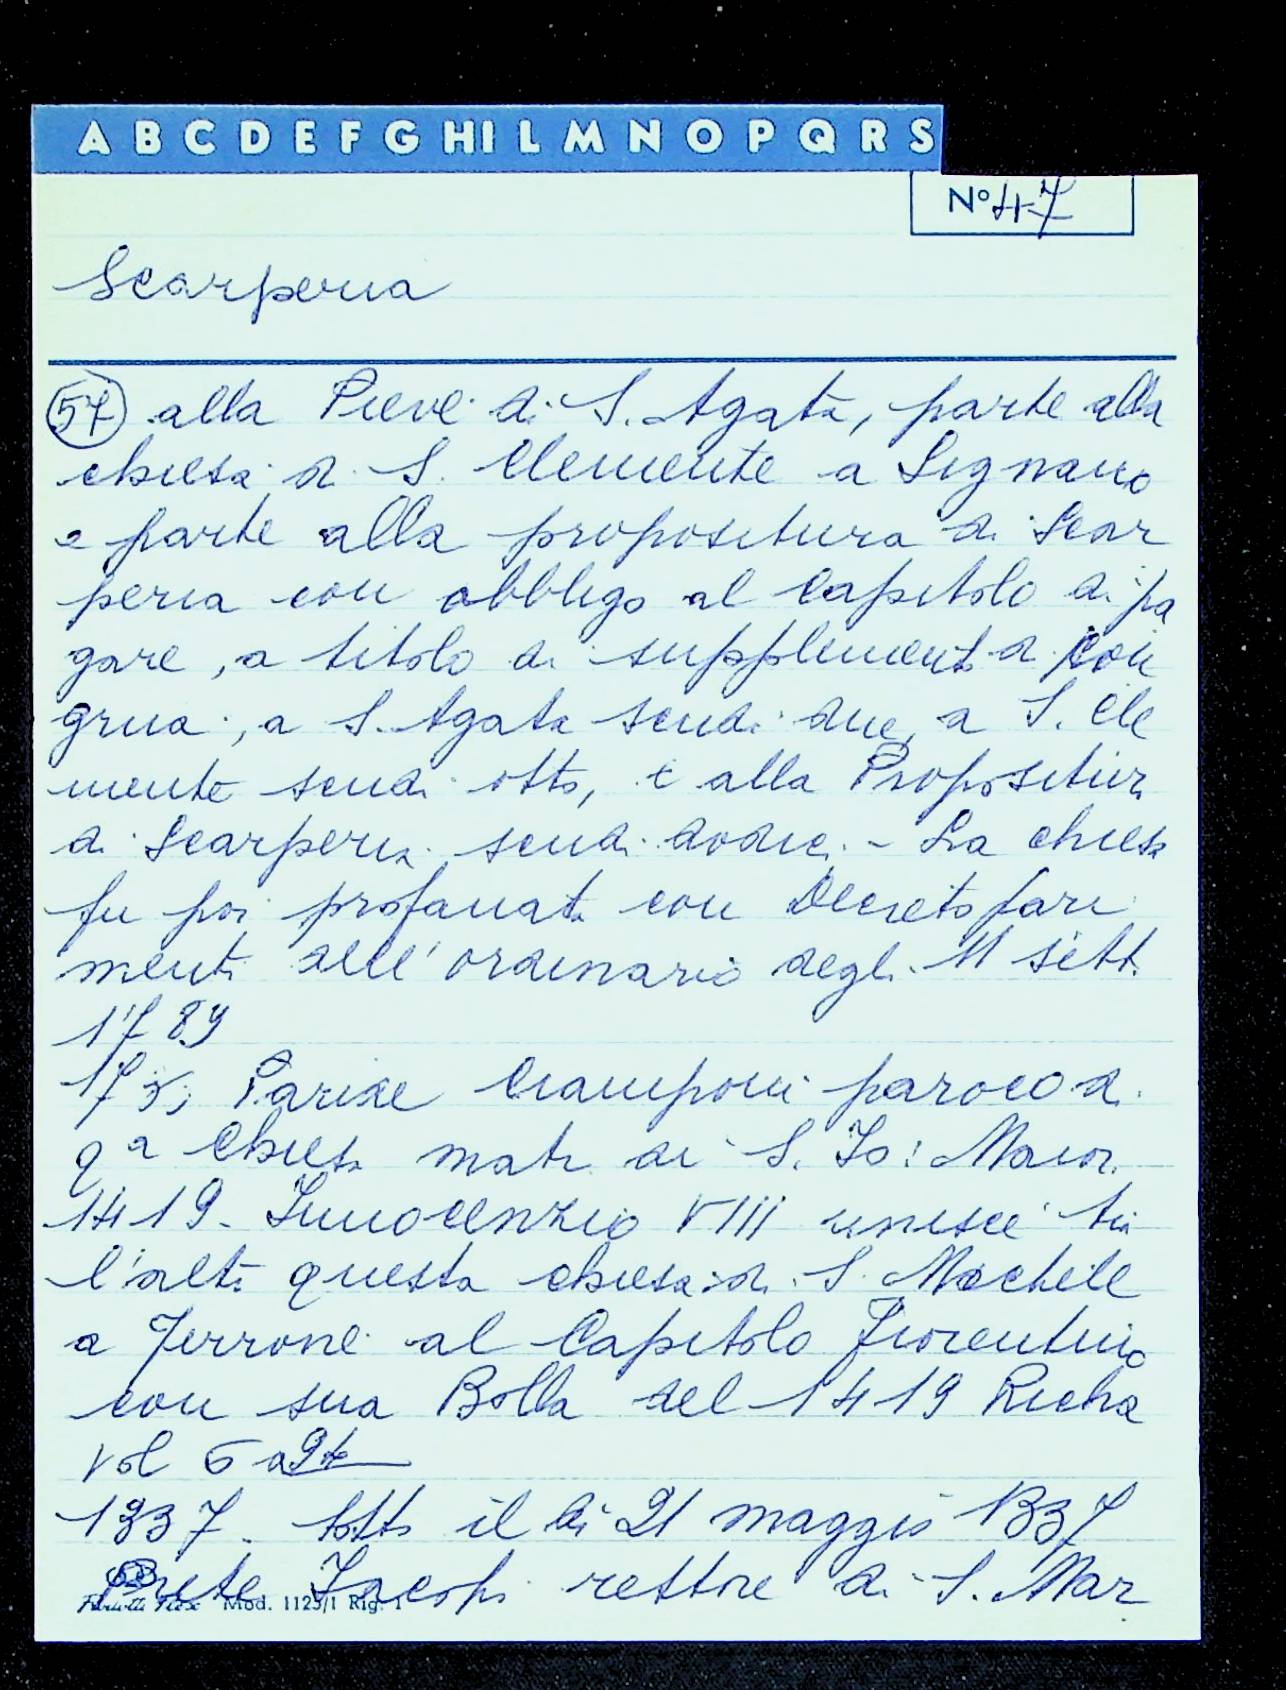 A B C D E F G HI L M N O P Q R S
No 47
Scarperia
57 alla Pieve di S. Agata, parte alla
chiesa di S. Clemente a Signano
e parte alla propositura di Scar
peria con obbligo al Capitolo di pa
gare, a titolo di supplement di con
grua, a S. Agata scudi due, a S. Cle
mente scudi otto, e alla Propositur
di Scarperia scudi dodici. - La chiesa
fu poi profanata con Decreto fari
menti dell'ordinario degli 11 sett.
1789
Paride Cramponi paroco di
qa Chiesa
1419 - Innocenzio VIII unisce tra
l'altre questa chiesa di S. Michele
a Ferrone al Capitolo Fiorentino
con sua Bolla del 1419 Richa
vol 6
1337. sotto il dì 21 maggio 1337
Prete Jacopo rettore di S. Mar
Mod. 1125/1 Rig. 1